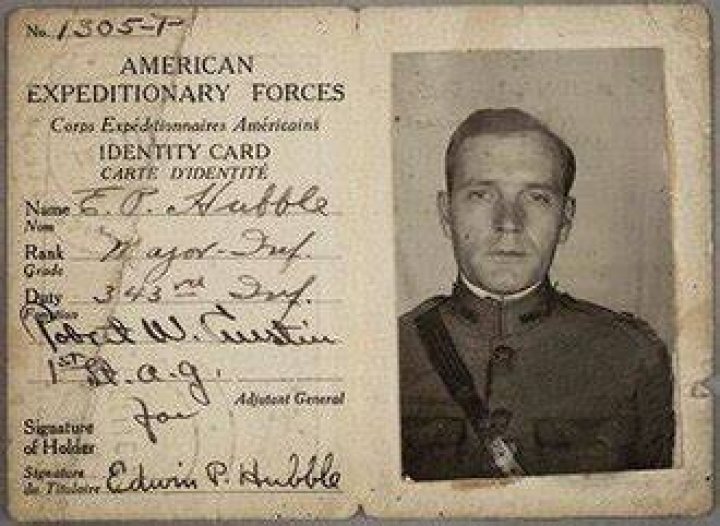 No. 1305-1
AMERICAN
EXPEDITIONARY FORCES
Corps Expéditionnaires Américains
IDENTITY CARD
CARTE D'IDENTITÉ
Name E. P. Hubble
Nom
Rank Major-Inf.
Grade
Duty 343rd Inf.
Fonction
Robert W. Austin
1st Lt. a.g.
Adjutant General
for
Signature
of Holder
Signature
du Titulaire Edwin P. Hubble